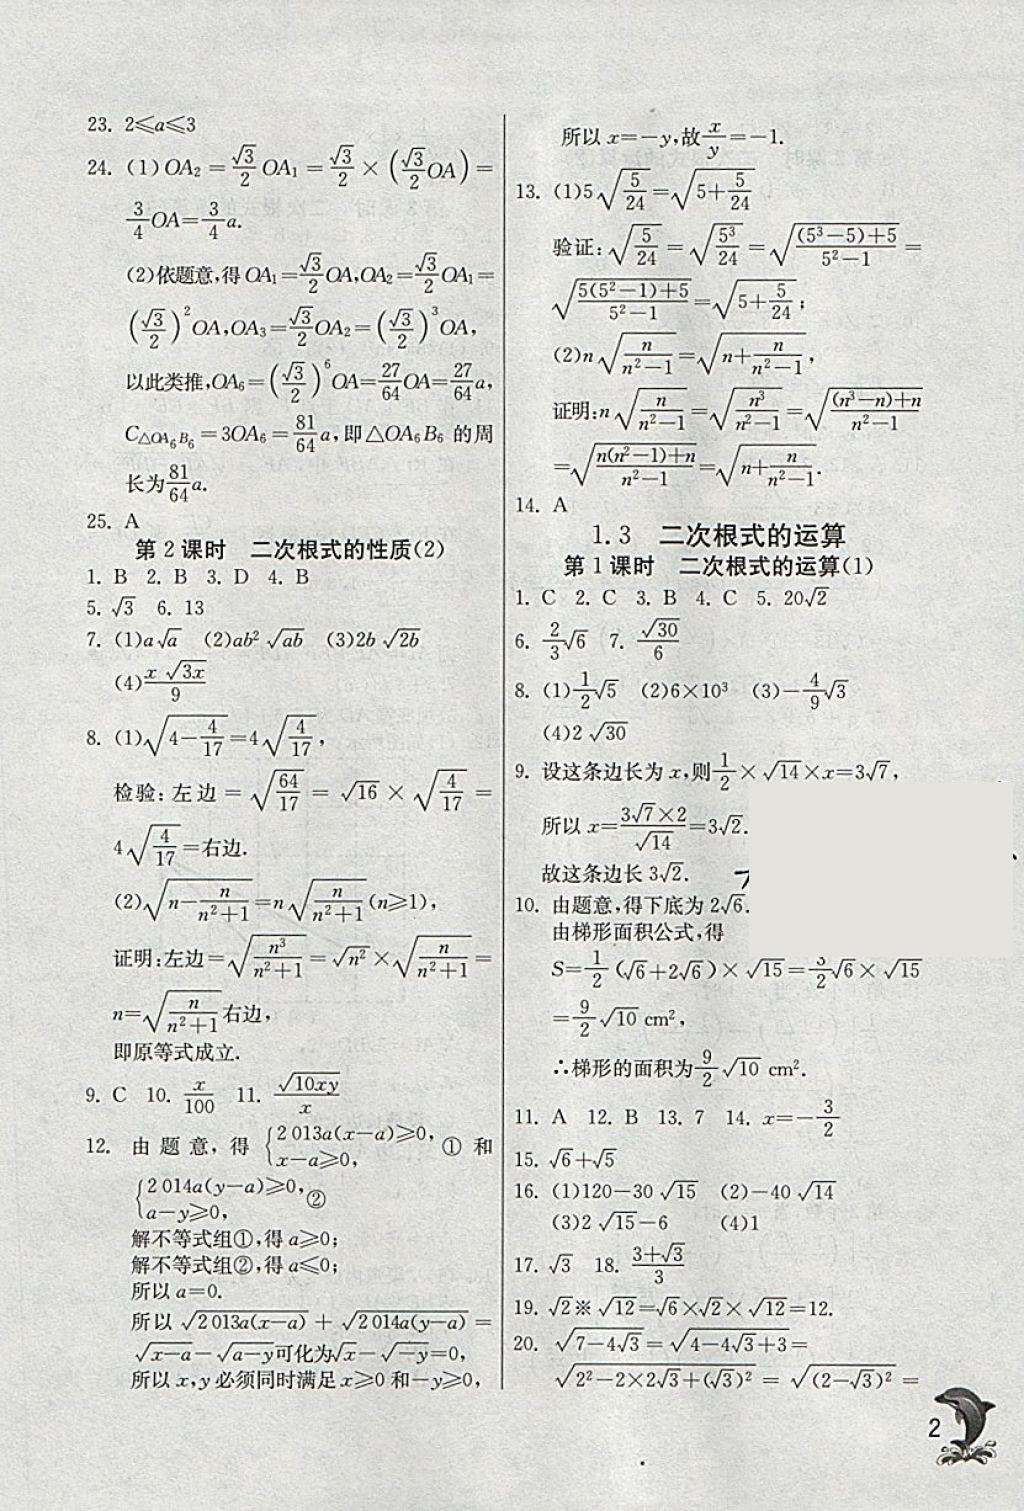 23. 2≤a≤3
24. (1)OA₂=√3/2 OA₁=√3/2×(√3/2 OA)=
3/4 OA=3/4 a.
(2)依题意,得OA₁=√3/2 OA,OA₂=√3/2 OA₁=
(√3/2)²OA,OA₃=√3/2 OA₂=(√3/2)³OA,
以此类推,OA₆=(√3/2)⁶OA=27/64 OA=27/64 a,
C△OA₆B₆=3OA₆=81/64 a,即△OA₆B₆的周
长为81/64 a.
25. A
第2课时 二次根式的性质(2)
1. B 2. B 3. D 4. B
5. √3 6. 13
7. (1)a√a (2)ab²√ab (3)2b√2b
(4)x√3x/9
8. (1)√(4-4/17)=4√(4/17),
检验:左边=√(64/17)=√16×√(4/17)=
4√(4/17)=右边.
(2)√(n-n/(n²+1))=n√(n/(n²+1))(n≥1),
证明:左边=√(n³/(n²+1))=√n²×√(n/(n²+1))=
n=√(n/(n²+1))右边,
即原等式成立.
9. C 10. x/100 11. √10xy/x
12. 由题意,得{2 013a(x-a)≥0, x-a≥0,①和
{2 014a(y-a)≥0, a-y≥0,②
解不等式组①,得a≥0;
解不等式组②,得a≤0;
所以a=0.
所以√(2 013a(x-a))+√(2 014a(y-a))=
√(x-a)-√(a-y)可化为√x-√(-y)=0,
所以x,y必须同时满足x≥0和-y≥0,
所以x=-y,故x/y=-1.
13. (1)5√(5/24)=√(5+5/24)
验证:√(5/24)=√(5³/24)=√(((5³-5)+5)/(5²-1))=
√((5(5²-1)+5)/(5²-1))=√(5+5/24);
(2)n√(n/(n²-1))=√(n+n/(n²-1)),
证明:n√(n/(n²-1))=√(n³/(n²-1))=√(((n³-n)+n)/(n²-1))
=√((n(n²-1)+n)/(n²-1))=√(n+n/(n²-1)).
14. A
1.3 二次根式的运算
第1课时 二次根式的运算(1)
1. C 2. C 3. B 4. C 5. 20√2
6. 2/3√6 7. √30/6
8. (1)1/2√5 (2)6×10³ (3)-4/9√3
(4)2√30
9. 设这条边长为x,则1/2×√14×x=3√7,
所以x=(3√7×2)/√14=3√2.
故这条边长3√2.
10. 由题意,得下底为2√6.
由梯形面积公式,得
S=1/2(√6+2√6)×√15=3/2√6×√15
=9/2√10 cm²,
∴梯形的面积为9/2√10 cm².
11. A 12. B 13. 7 14. x=-3/2
15. √6+√5
16. (1)120-30√15 (2)-40√14
(3)2√15-6 (4)1
17. √3 18. (3+√3)/3
19. √2※√12=√6×√2×√12=12.
20. √(7-4√3)=√(4-4√3+3)=
√(2²-2×2√3+(√3)²)=√((2-√3)²)=
2